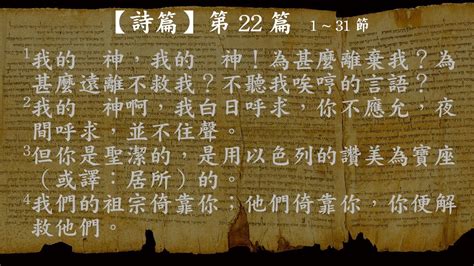 【詩篇】第 22 篇 1～31 節
1我的　神，我的　神！為甚麼離棄我？為
甚麼遠離不救我？不聽我唉哼的言語？
2我的　神啊，我白日呼求，你不應允，夜
間呼求，並不住聲。
3但你是聖潔的，是用以色列的讚美為寶座
（或譯：居所）的。
4我們的祖宗倚靠你；他們倚靠你，你便解
救他們。